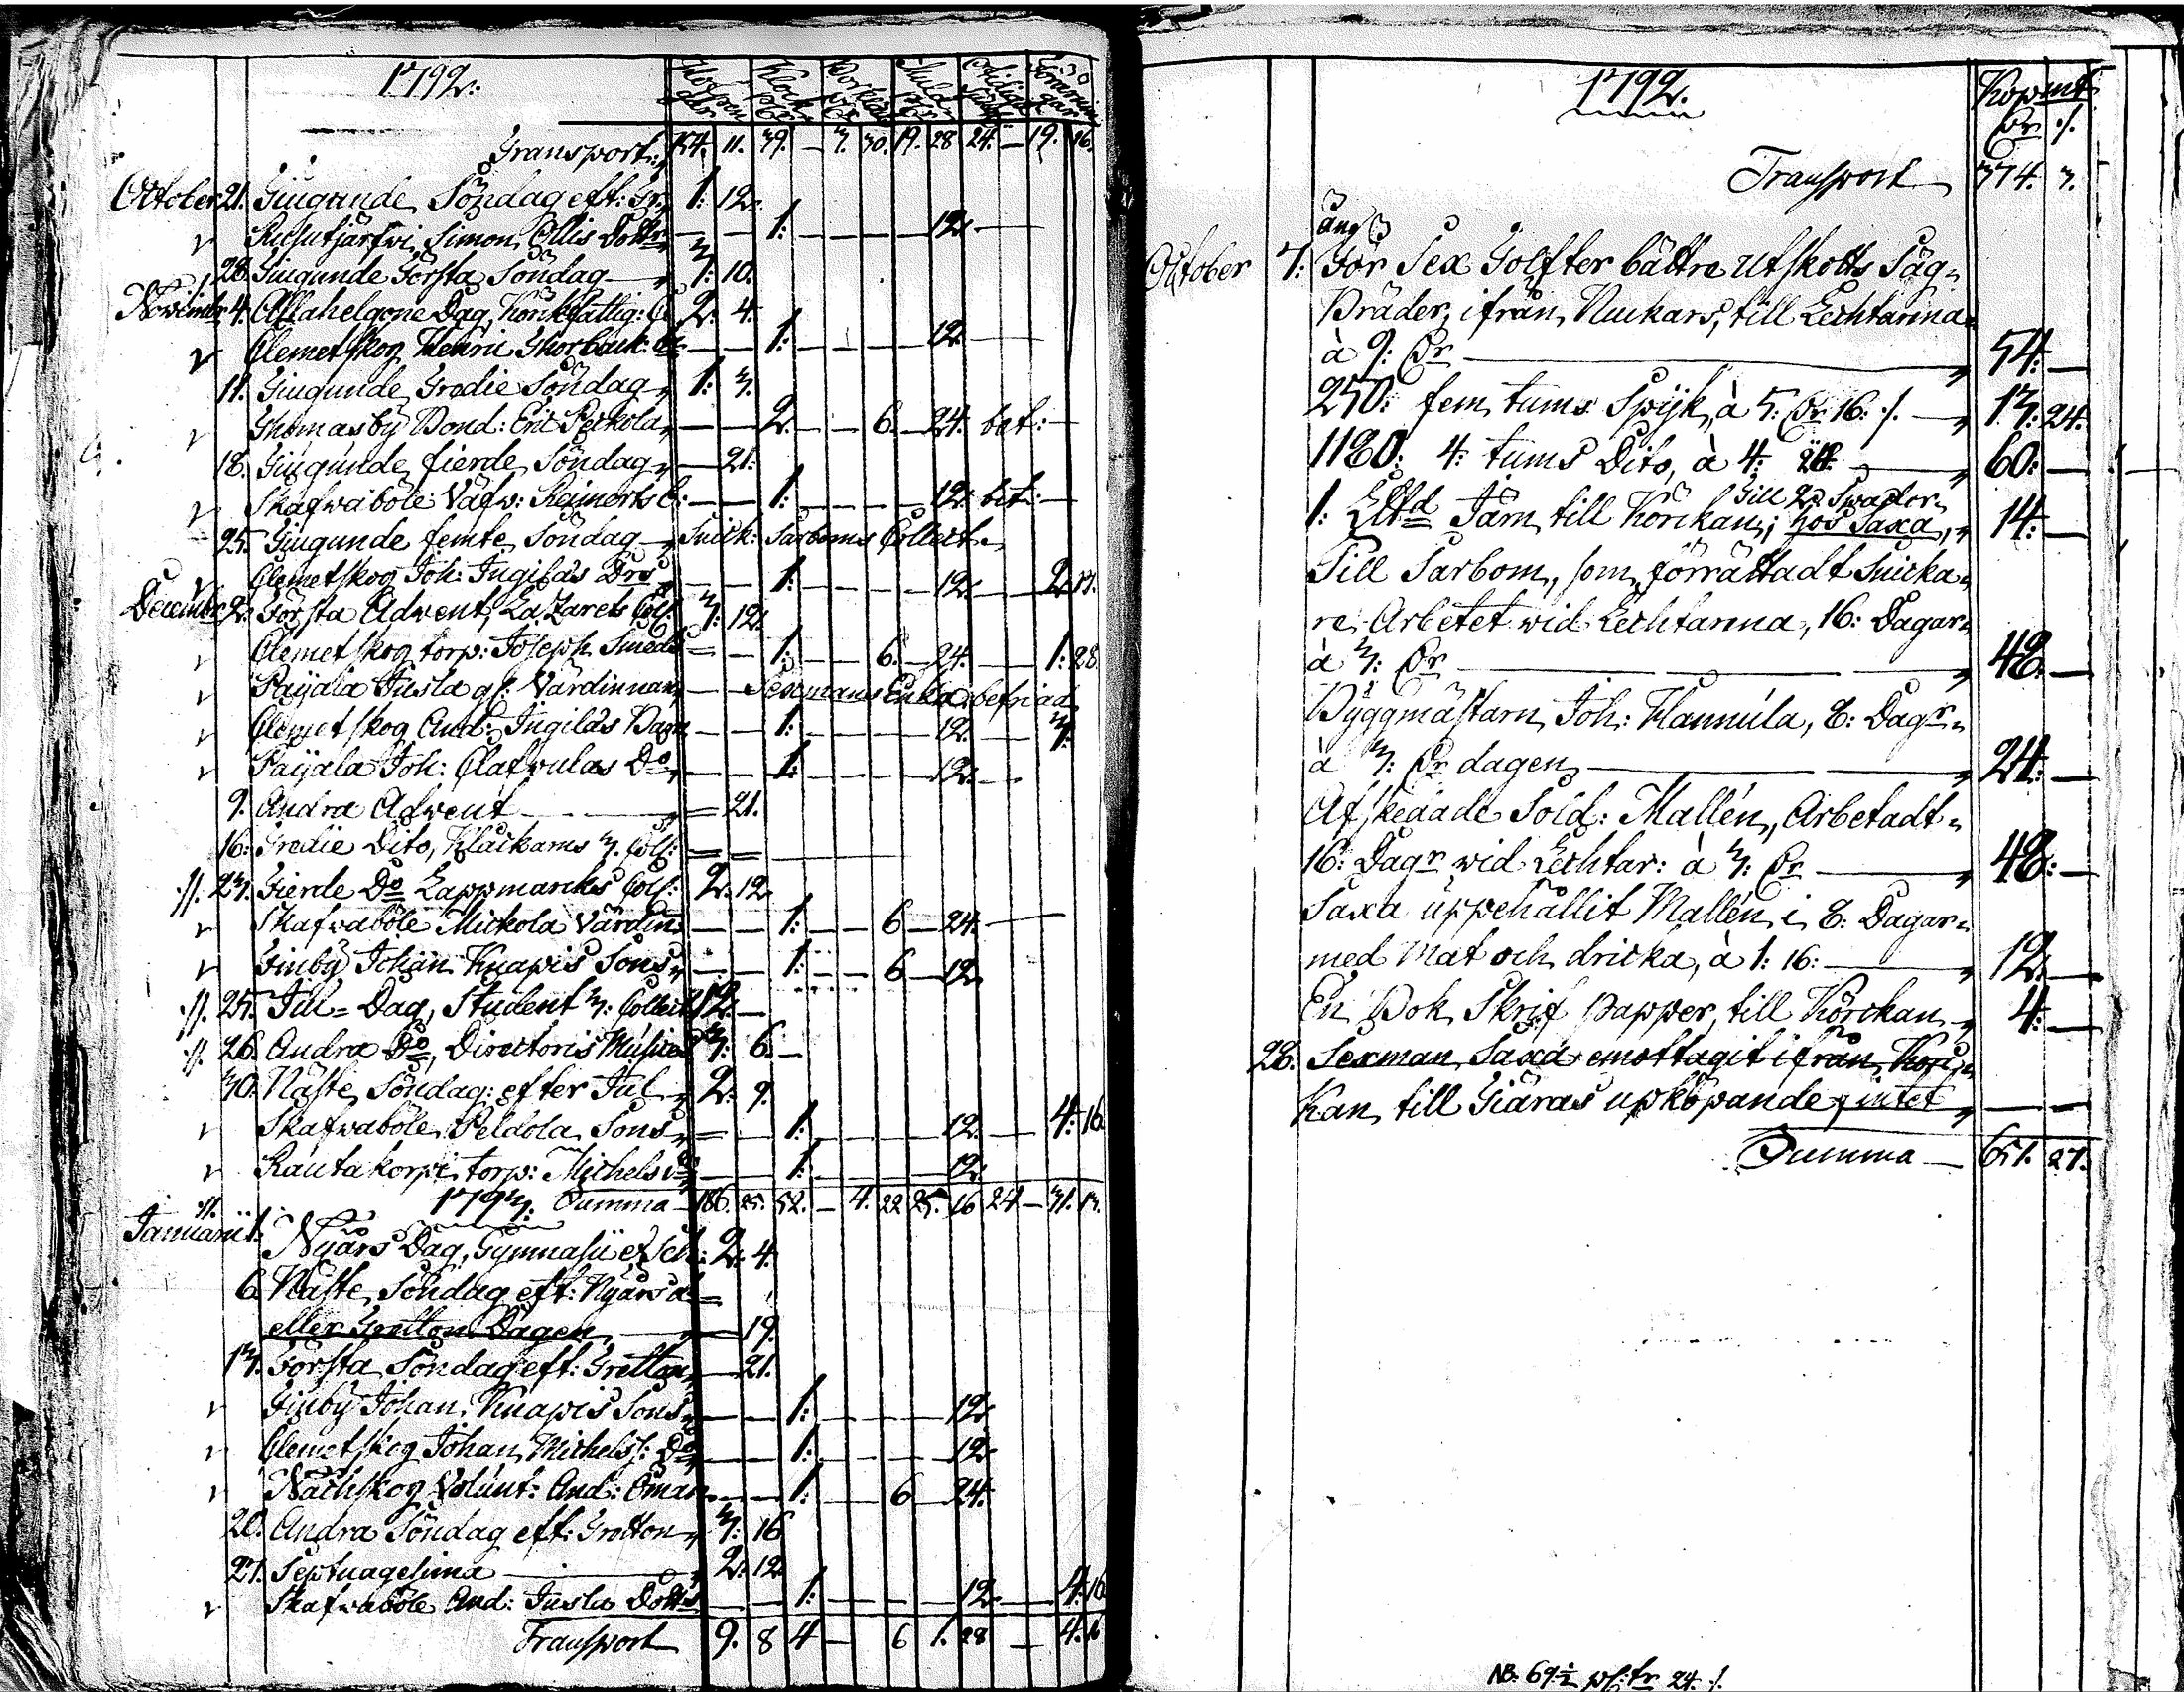 1792.
Transport 154. 11. 39. — 3. 30. 19. 28 24. — 19. 16.
October 21. Tiugunde Söndag eft: Tr. 1: 12.
Simon Ollis Dottr — — 1: — — — — 12. —
28. Tiugunde Första Söndag 3: 10.
Novembr 4. Allahelgone Dag, 2: 4.
Clemetskog Henric — — 1: — — — 12. —
11. Tiugunde Tredie Söndag 1: 3.
Thomasby Bond: Eric Peckola — — 2. — — 6. — 24. bet: —
18. Tiugunde fierde Söndag — 21.
Skafwaböle Väfw: Reinerts — — 1: — — — — 12. bet: —
25. Tiugunde femte Söndag Snick: Sarboms Collect.
Clemetskog Joh: Ingilas Drs — — 1: — — — 12. — 2. 13.
Decembr 2. Första Adwent, Lazarets Coll: 3: 12.
Clemetskog torp: Joseph Smeds — — 1: — — 6. — 24. — 1: 28.
Payala Jusla gl: Värdinnan — — Sexmans Enka befriad
Clemetskog And: Ingilas Barn — — 1: — — — 12. — 3:
Payala Joh: Olafwulas Do — — 1: — — — 12. —
9. Andra Adwent — 21.
16. Tredie Dito, Coll: — —
://. 23. Fierde Do Lappmarcks Coll: 2. 12
Skafwaböle Mickola Värdin — — 1: — — 6 — 24. —
Finby Johan Knapis Sons — — 1: — — 6 — 12
://. 25. Jul-Dag, Student 3: Collect 12. —
://. 26. Andra Do, Directoris Musices 3: 6. —
30. Näste Söndag: efter Jul 2. 9.
Skafwaböle Peldola Sons — — 1: — — — 12. — 4: 16
Rautakorpi torp: Michels — — 1: — — — 12.
1793. Summa 186. 25. 52. — 4. 22 25. 16 24 — 31. 13.
Januarii 1. Nyårs Dag, Gymnasii et Sch: 2. 4.
6. Näste Söndag eft: Nyårs d. —
eller Tretton Dagen — 19.
13. Första Söndag eft: Tretton — 21.
Finby Johan Knapis Sons — — 1: — — — 12
Clemetskog Johan Michels: Do — — 1: — — — 12
Nächskog Volunt: And: Öman — — 1: — 6 — 24.
20. Andra Söndag eft: Tretton 3: 16
27. Septuagesima 2. 12.
Skafwaböle And: Jusla Dott — — 1: — — — 12. — 4: 16
Transport 9. 8 4 — 6 1. 28 — 4. 16
1792. Kopmt
Dr ./.
Transport 374. 3.
October 7: För Sex Tolfter bättre Utskotts Såg
Bräder, ifrån Nuckars, till Lechtarina
à 9: Dr 54: —
250: fem tums Spijk, à 5: Dr 16: ./. 13: 24.
1180: 4: tums Dito, à 4: 60: —
Till 2 Swactor
1: Lltd Järn till Körckan, hos Saxa, 14: —
Till Sarbom, som förrättadt Snicka
re Arbetet wid Lechtarina, 16: Dagar
à 3: Dr 48: —
Byggmästarn Joh: Hannula, 8: Dagr
à 3: Dr dagen 24: —
Afskedade Sold: Mallén, Arbetadt
16: Dagr wid Lechtar: à 3: Dr 48: —
Saxa uppehållit Mallén i 8: Dagar
med Mat och dricka, à 1: 16: 12. —
En Bok Skrif papper till Körckan 4: —
28. Sexman Saxa emottagit ifrån Kör
kan till Tiäras upköpande intet — —
Summa 651. 27.
NB. 69½